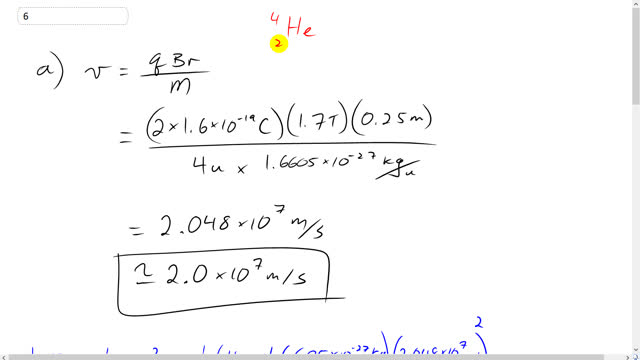 6
⁴₂He
a) v = qBr / m
= (2×1.6×10⁻¹⁹C)(1.7T)(0.25m) / 4u × 1.6605×10⁻²⁷ kg/u
= 2.048×10⁷ m/s
≃ 2.0×10⁷ m/s